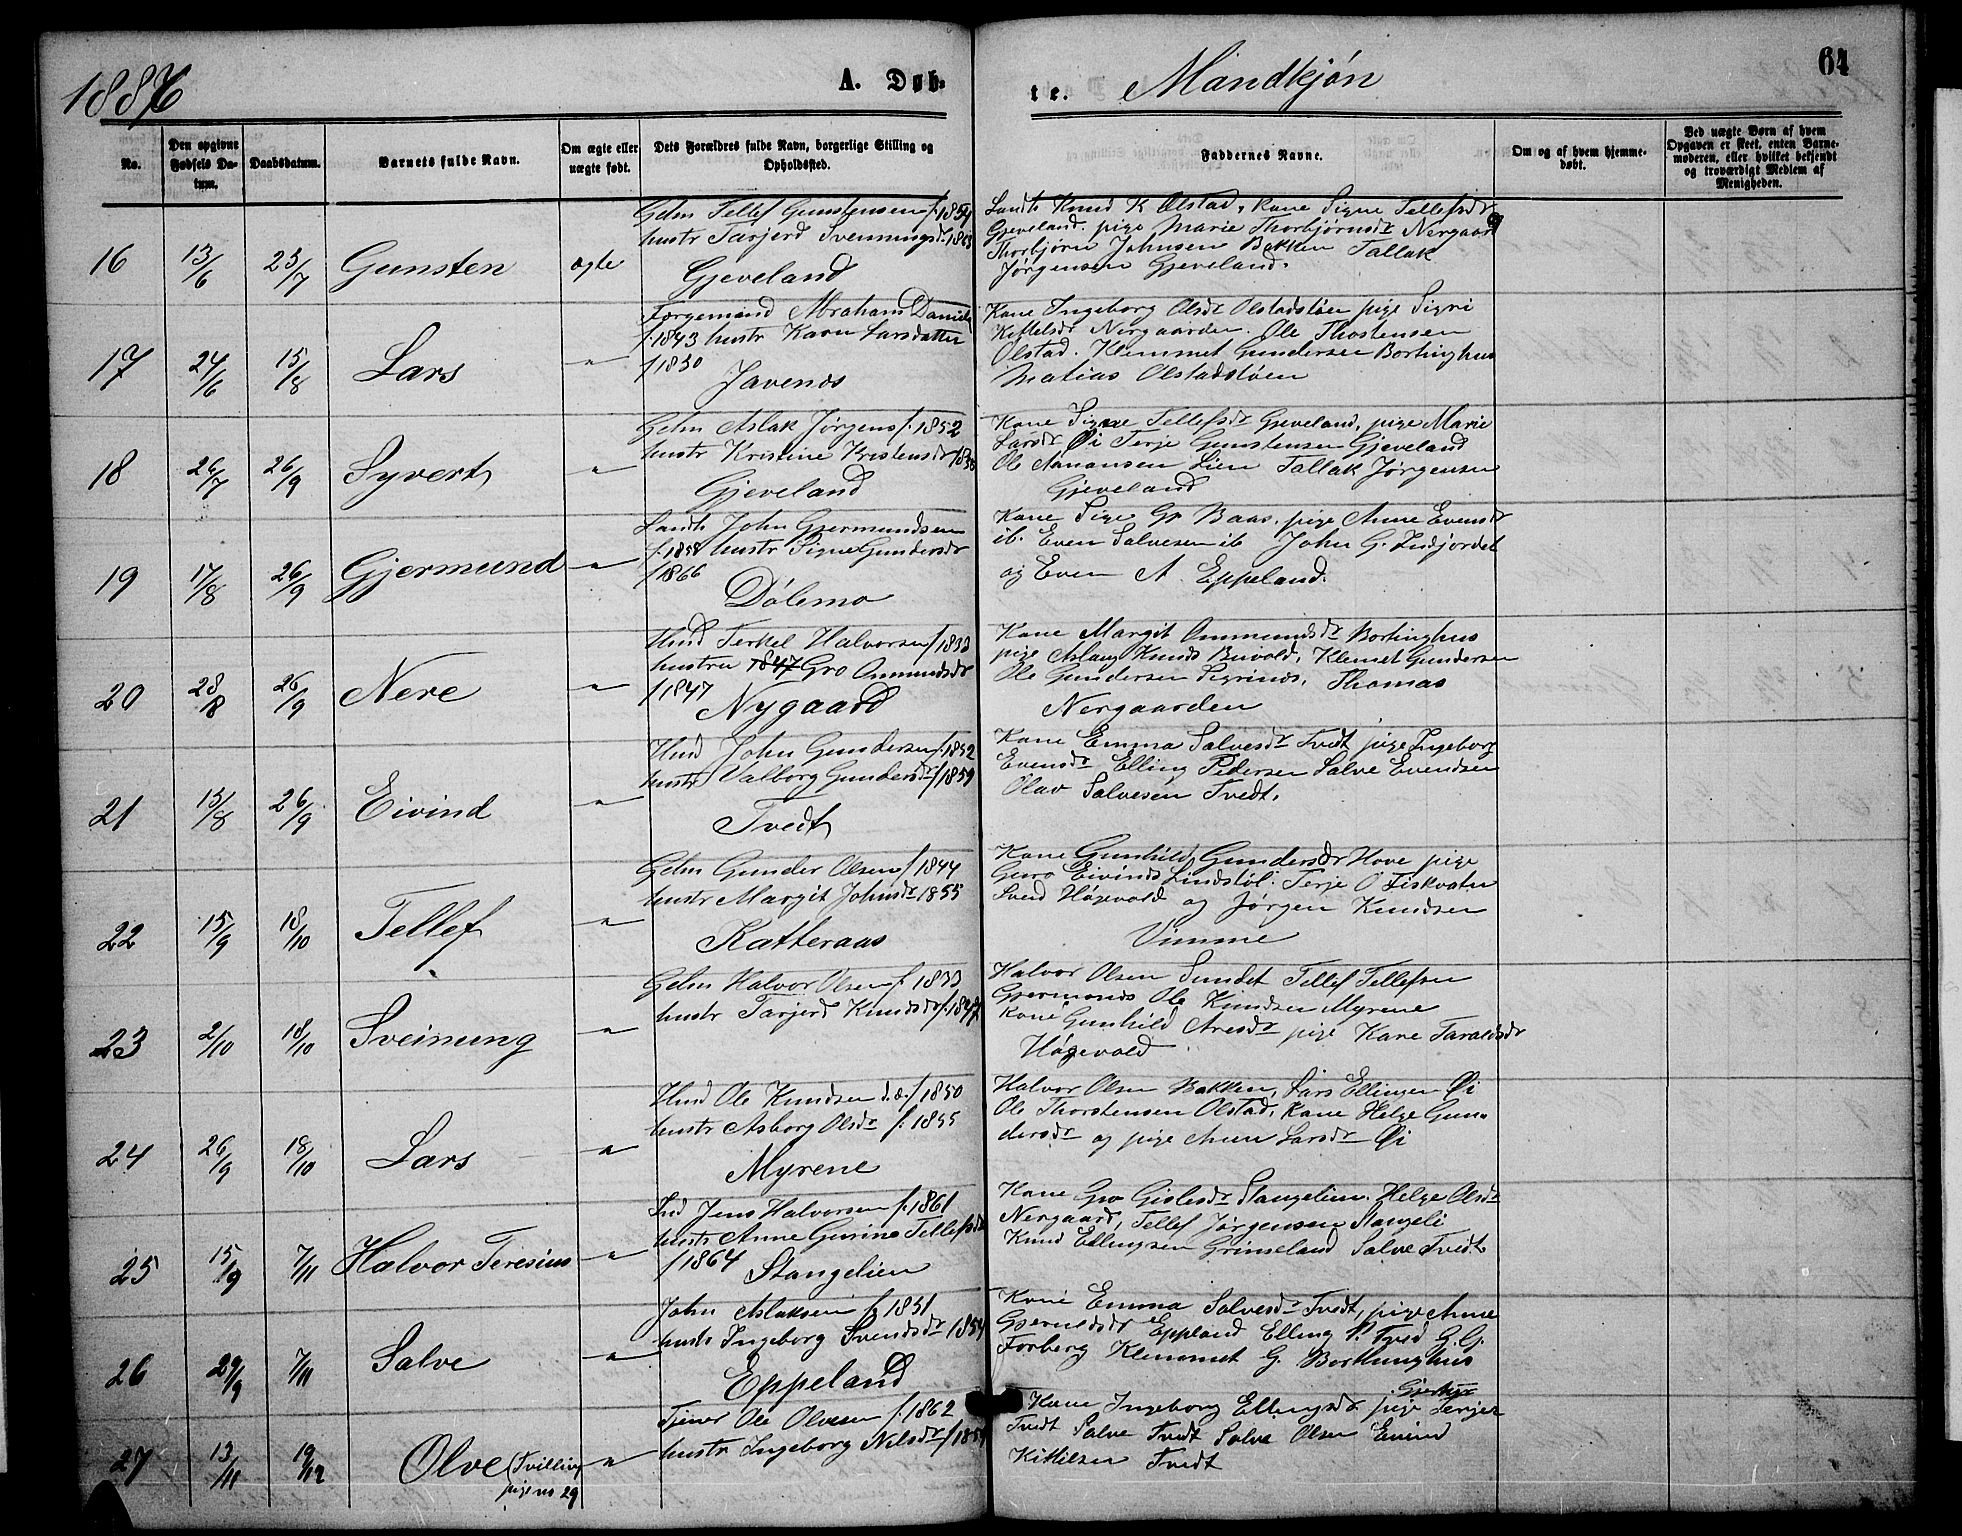 1886
A. Døb-
te. Mandkjøn
64
No.
Den opgivne Fødsels Da-
tum.
Daabsdatum.
Barnets fulde Navn.
Om ægte eller
uægte født.
Dets Forældres fulde Navn, borgerlige Stilling og
Opholdssted.
Faddernes Navne.
Om og af hvem hjemme-
døbt.
Ved uægte Børn af hvem
Opgaven er skeet, enten Barne-
moderen, eller hvilket bekjendt
og troværdigt Medlem af
Menigheden.
16 13/6 25/7 Gunsten ægte
Gdm Tellef Gunstensen f. 1854
hustr Tarjerd Sveinungsdr 1863
Gjeveland
Landh Knud K Ølstad, Kone Signe Tellefsdr
Gjeveland. pige Marie Thorbjørnsdr Nergaard
Thorbjørn Johnsen Bakken Tallak
Jørgensen Gjeveland.
17 24/6 15/8 Lars "
Forgemand Abraham Daniels
f. 1843 hustr Karen Larsdatter
f 1850
Javenæs
Kone Ingeborg Olsdr Olstadstøen pige Sigri
Kittelsdr Nergaarden. Ole Thostensen
Olstad. Klemmet Gundersen Bortinghus
Matias Olstadstøen
18 26/7 26/9 Syvert "
Gdm Aslak Jørgens f. 1852
hustr Kristine Kristensdr
Gjeveland
Kone Signe Tellefsdr Gjeveland, pige Marie
Larsdr Øi Terje Gunstensen Gjeveland
Ole Aanansen Lien Tallak Jørgensen
Gjeveland
19 17/8 26/9 Gjermund "
Landh John Gjermundsen
f. 1858 hustr Signe Gundersdr
f 1866
Dølemo
Kone Sigri Gr Baas, pige Anne Evensdr
ib. Even Salvesen ib John G. Indjordet
og Even A. Eppeland.
20 28/8 26/9 Nere "
Hmd Terkel Halvorsen f 1833
hustru 1847 Gro Ommundsdr
f 1847
Nygaard
Kone Margit Ommundsdr Bortinghus
pige Aslaug Knuds Beivold, Klemet Gundersen
Ole Gundersen Sigrinæs, Thomas
Nergaarden
21 15/8 26/9 Eivind "
Hmd John Gundersen f. 1852
hustr Valborg Gundersdr f 1859
Tvedt
Kone Emma Salvesdr Tvedt pige Ingeborg
Evensdr Elling Pedersen Salve Evendsen
Olav Salvesen Tvedt.
22 15/9 18/10 Tellef "
Gdm Gunder Olsen f 1844
hustr Margit Johnsdr 1855
Katteraas
Kone Gunhild Gundersdr Hove pige
Guro Eivinds Lindstøl. Terje O Fiskvatn
Svend Høgevold og Jørgen Knudsen
Vimme
23 2/10 18/10 Sveinung "
Gdm Halvor Olsen f. 1833
hustr Tarjerd Knudsdr f. 1847
Halvor Olsen Sundet Tellef Tellefsen
Gjermonds Ole Knudsen Myrene
Kone Gunhild Aresdr pige Kare Taraldsdr
Høgevold
24 26/9 18/10 Lars "
Hmd Ole Knudsen d.æ. f 1850
hustr Asborg Olsdr f. 1855
Myrene
Halvor Olsen Bakken, Lars Ellingen Øi
Ole Thorstensen Olstad, Kone Helge Gun-
dersdr og pige Anne Larsdr Øi
25 15/9 7/11 Halvor Teresius "
Ind Jens Halvorsen f. 1861
hustr Anne Gurine Tellefsdr
f 1864 Stangelien
Kone Gro Gislesdr Stangelien. Helge Olsdr
Nergaard, Tellef Jørgensen Stangeli
Knud Ellingsen Grimseland Salve Tvedt
26 29/9 7/11 Salve "
John Aslaksen f. 1851
hustr Ingeborg Svendsdr 1854
Eppeland
Kone Emma Salvesdr Tvedt, pige Anne
Gjeruldsdr Eppland Elling P. Tved G. G.
Forberg Klemmet G. Bortlinghus
27 13/11 19/12 Olve (Tvilling
pige no 29
Tjener Ole Olvesen f. 1862
hustr Ingeborg Nilsdr f 1859
Kone Ingeborg Ellingsdr pige Terjer
Tvedt Salve Tvedt Salve Olsen Eivind
Kittilsen Tvedt